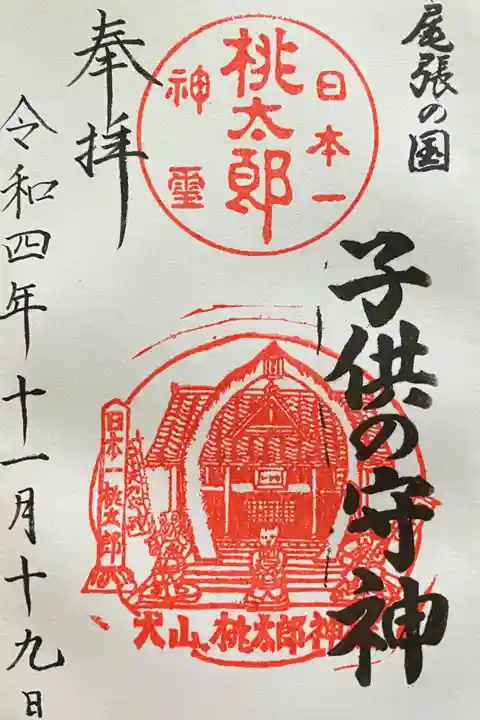 尾張の国
子供の守神
日本一
桃太郎
神霊
日本一桃太郎
犬山桃太郎神
奉拝
令和四年十一月十九日